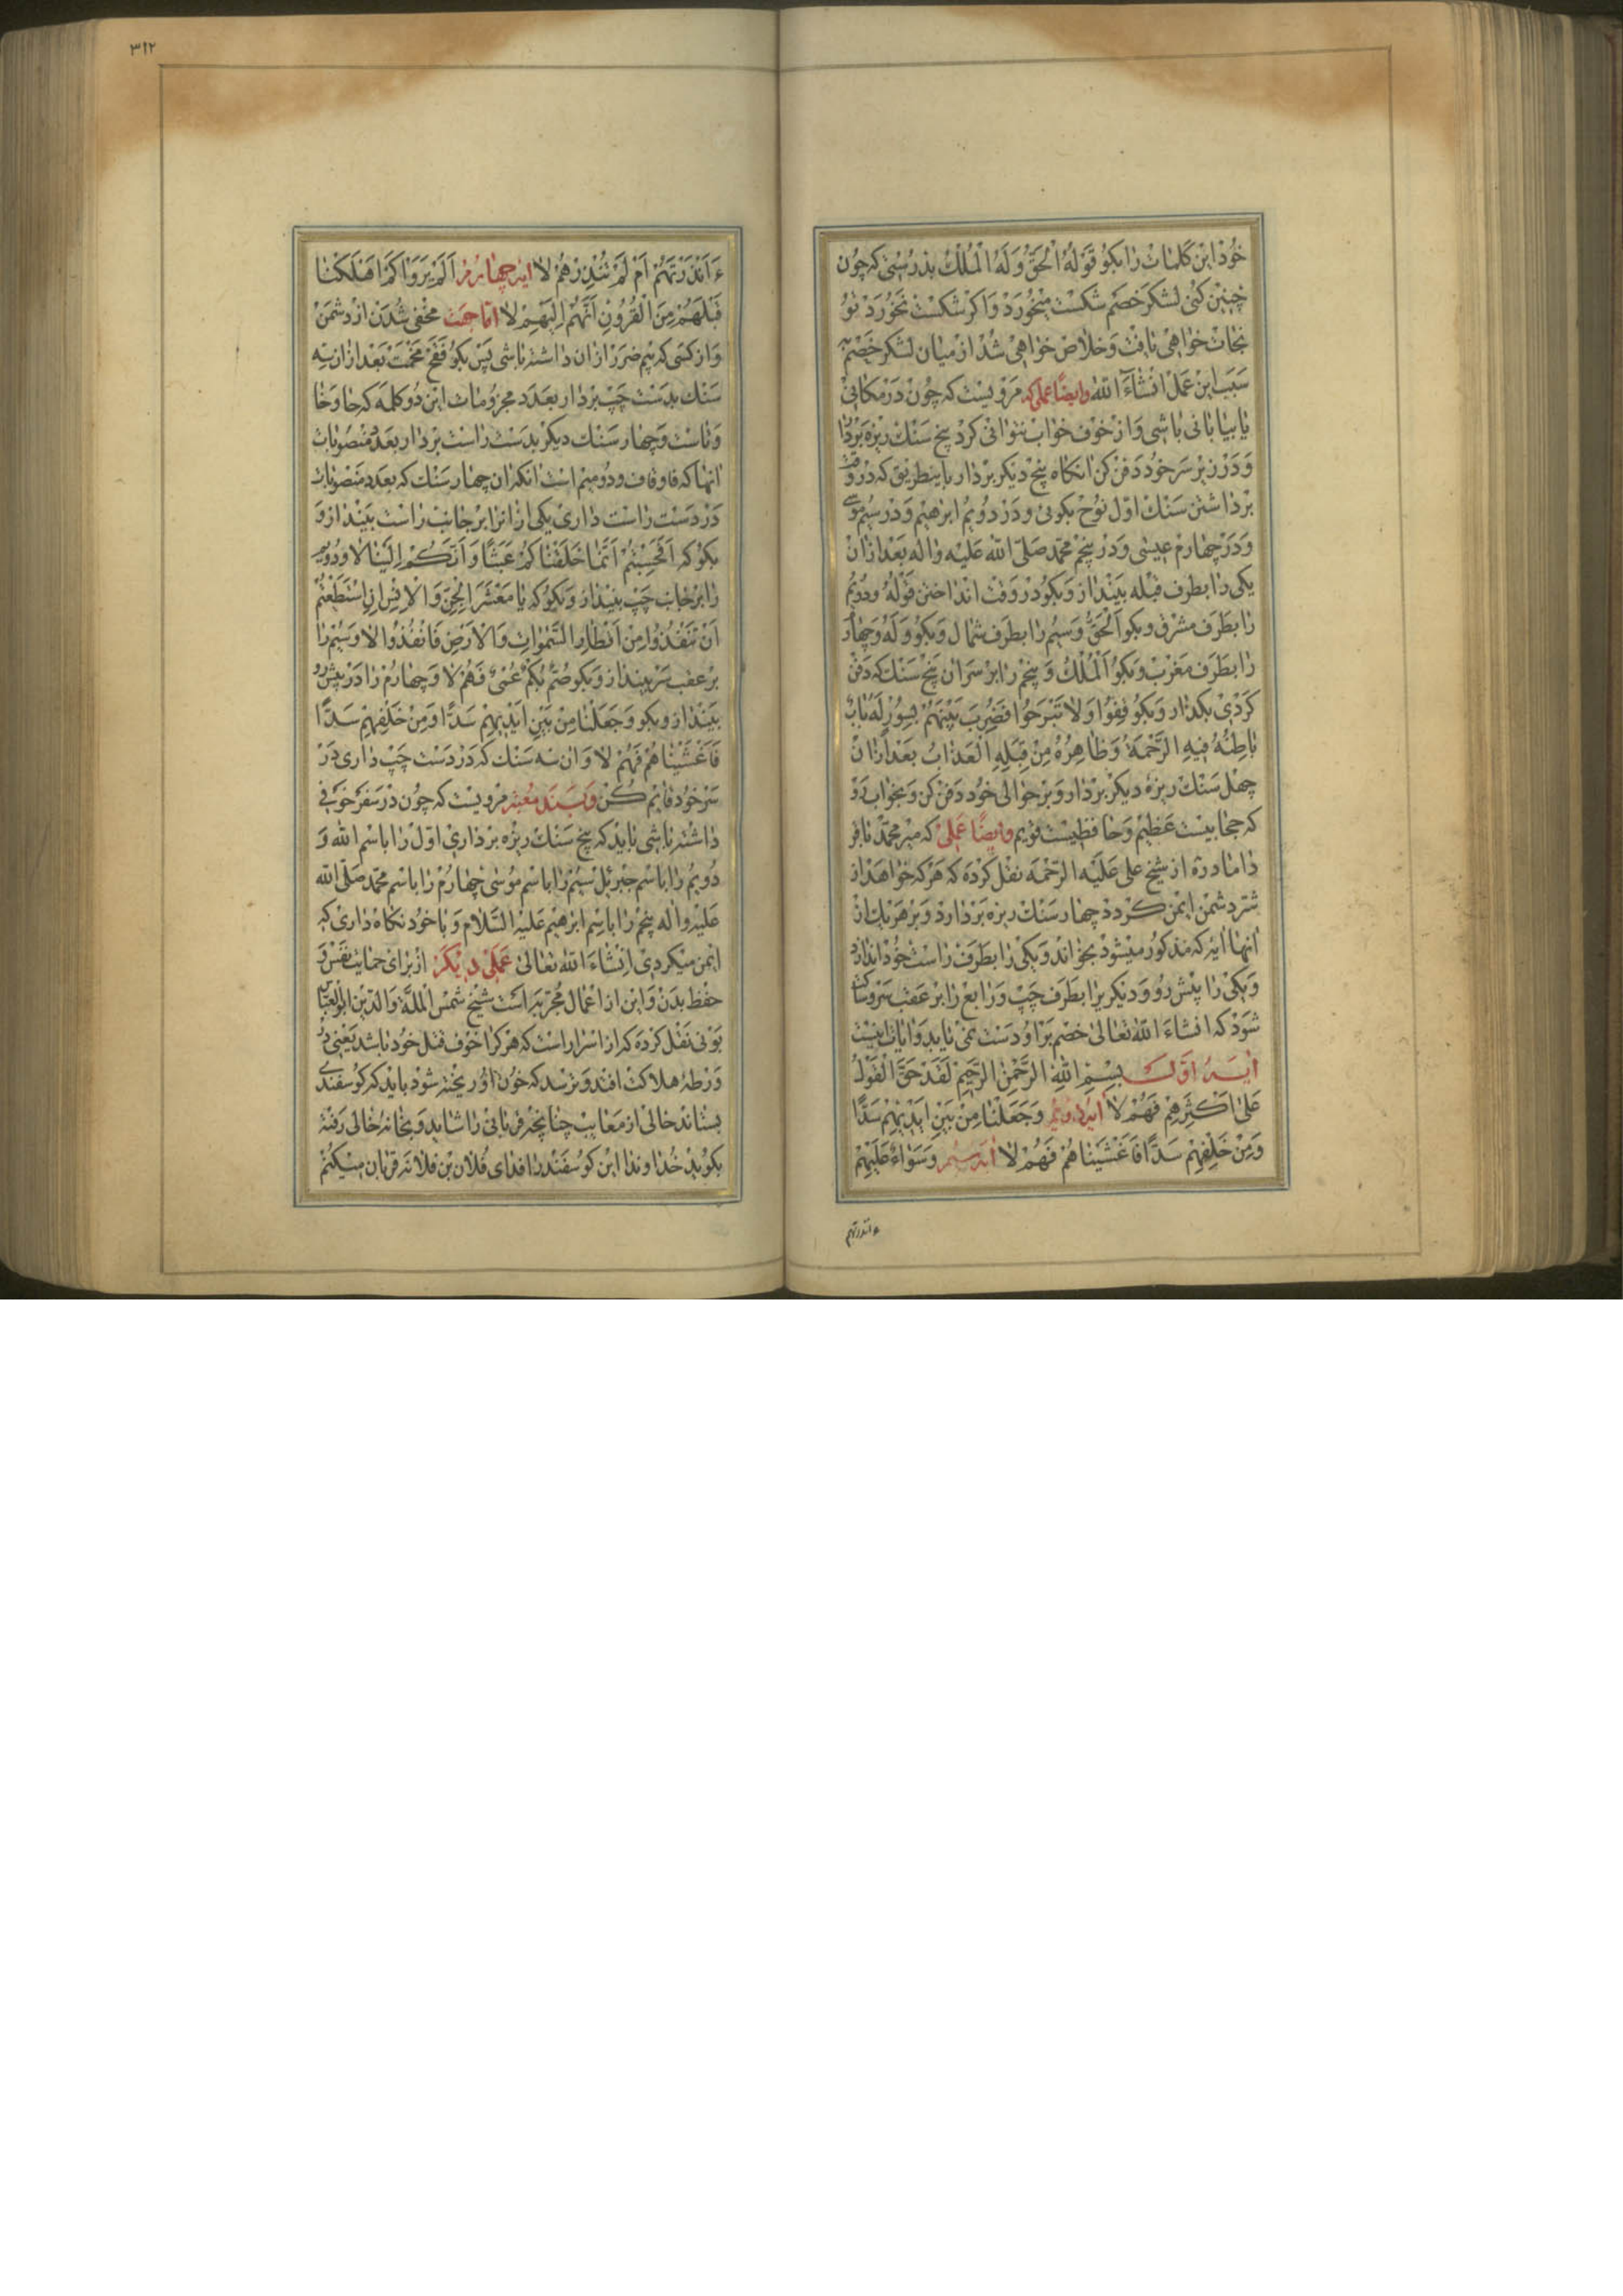 خُودْ اینْ کَلِماتْ رٰا بکو قَوْلُهُ الْحَقُّ وَلَهُ الْمُلْکُ بدرُستی که چُون
چنین کنی لشکر خَصَم شکسْت میْخُورَدْ وَاکر شکسْت نخُورَدْ تو
نجات خوٰاهی یٰافت وَخلاص خوٰاهی شُدْ از میٰان لشکر خَصْم
سَبَب این عَمَلْ انْشٰآءَ اللّٰه وایضًا عملی که مرویست که چُونْ دَرْ مکٰانی
یٰا بیٰابٰانی بٰاشی وَازْ خَوْف خوٰاب نتوٰانی کرْد پنج سَنْك ریزه بَرْدٰا
وَدَرْ زیر سَر خُود دَفْن کن انکاه پنج دیکر برْدٰار باینطریق که درْ وقت
بَرْدٰاشتن سَنْك اوّل نُوحْ بکوئی ودَرْ دُویُم ابرٰهیم وَدرْ سیُم موسی
وَدَرْ چهٰارم عیسٰی وَدرْ پنجم محمّد صَلّی اللّٰه عَلَیْه وٰاله بَعْد ازٰان
یکی رٰا بطرف قبْله بینْدٰاز وَبکو دَرْ وَقت اندٰاختن قَوْلُهُ ودُویُم
رٰا بطَرَف مشرق وبکو اَلْحَقُّ وَسیُم رٰا بطَرَف شمال وَبکو وَلَهُ وَچهٰار
رٰا بطَرَف مَغْرب وبکو اَلْمُلْكُ وَپنجم رٰا برْ سَرٰان پَنْج سَنْك که دَفْن
کَرْدی بکذار وَبکو قِفُوا وَلٰا تَبْرَحُوا فَضُرِبَ بَیْنَهُمْ بِسُورٍ لَهُ بٰابٌ
بٰاطِنُهُ فیهِ الرَّحْمَةُ وَظٰاهِرُهُ مِنْ قِبَلِهِ الْعَذٰابُ بَعْد ازٰان
چهْل سَنْك ریزه دیکرْ برْدٰار وَبرْ حَوٰالی خُود دَفْن کن وَبخوٰاب رَوْ
که حجٰابیست عَظیم وَحٰافظیست قویم وایضًا عَمَلی که میر محمّد بٰاقر
دٰامٰاد ره از شیخ علی عَلَیْه الرّحْمَه نقْل کرْدَه که هَرْکه خوٰاهَدْ از
شرّ دشمن ایْمن کردد چهٰار سَنْك ریزه بَرْدٰارد وَبرْ هَریك ازْ
انهٰا ایه که مَذکُور میشوَدْ بخوٰاند وَیکی رٰا بطَرَف رٰاسْت خُودْ اندٰازد
وَیکی رٰا پیش رُو وَدیکریرٰا بطَرَف چَپ وَرٰابع رٰا بر عَقب سَر
شوَدْ که انشٰاءَ اللّٰه تعٰالی خصْم بَرْ او دَسْت نمی یٰابد وٰایات اینسْت
ایه اوّل بِسْمِ اللّٰهِ الرَّحْمٰنِ الرَّحیمِ لَقَدْ حَقَّ الْقَوْلُ
عَلٰی اَکْثَرِهِمْ فَهُمْ لٰا ایه دویُم وَجَعَلْنٰا مِنْ بَیْنِ اَیْدیهِمْ سَدًّا
وَمِنْ خَلْفِهِمْ سَدًّا فَاَغْشَیْنٰاهُمْ فَهُمْ لٰا ایه سیُم وَسَوٰاءٌ عَلَیْهِمْ
ءانذرتهم
٣١٢
ءَاَنْذَرْتَهُمْ اَمْ لَمْ تُنْذِرْهُمْ لٰا ایه چهارم اَلَمْ یَرَوْا کَمْ اَهْلَکْنٰا
قَبْلَهُمْ مِنَ الْقُرُونِ اَنَّهُمْ اِلَیْهِمْ لٰا امّا جهت مخْفی شُدَنْ ازْ دشمَنْ
وَاز کسَی که بیم ضرَرْ ازٰان دٰاشته بٰاشی پَسْ بکو فَقَجْ مَخْمَتْ بَعْد ازٰان سِه
سَنْك بدَسْت چَپ بَرْدٰار بعَدَد مجزُومٰات این دُو کلمَه که حٰا وَخٰا
وَتٰاست وَچهٰار سَنْك دیکر بدَسْت رٰاست برْدٰار بعَدَد مَنْصُوبٰات
انهٰا که فٰا وقٰاف ودُو میْم است انکه ان چهٰار سَنْك که بعَدَد مَنْصُوبٰات
دَرْ دَسْت رٰاست دٰاری یکی ازٰانرٰا بر جٰانب رٰاست بینْدٰاز وَ
بکو که اَفَحَسِبْتُمْ اَنَّمٰا خَلَقْنٰاکُمْ عَبَثًا وَاَنَّکُمْ اِلَیْنٰا لٰا ودُویم
رٰا بر جٰانب چَپ بینْدٰاز وَبکو که یٰا مَعْشَرَ الْجِنِّ وَالْاِنْسِ اِنِ اسْتَطَعْتُمْ
اَنْ تَنْفُذُوا مِنْ اَقْطٰارِ السَّمٰوٰاتِ وَالْاَرْضِ فَانْفُذُوا لٰا وَسیُم رٰا
بر عقب سَر بینداز وَبکو صُمٌّ بُکْمٌ عُمْیٌ فَهُمْ لٰا وَچهٰارُم رٰا دَرْ پیش رو
بینْدٰاز وبکو وَجَعَلْنٰا مِنْ بَیْنِ اَیْدیهِمْ سَدًّا وَمِنْ خَلْفِهِمْ سَدًّا
فَاَغْشَیْنٰاهُمْ فَهُمْ لٰا وَان سِه سَنْك که دَرْ دَسْت چَپ دٰاری دَرْ
سَر خُود قٰایم کُنْ وَبسَنَد مُعْتبر مرویست که چُون دَرْ سَفَر خَوْفی
دٰاشته بٰاشی بٰاید که پنج سَنْك ریزه بردٰاری اوّلْ رٰا باسْم اللّٰه وَ
دُویُم رٰا باسْم جبْرئل سیُم رٰا باسم مُوسٰی چهٰارُم رٰا باسْم محمّد صَلّی اللّٰه
عَلَیْه وٰاله پنجم رٰا باسْم ابرٰهیم عَلَیْه السَّلٰام وَبٰا خُود نکٰاه دٰاری که
ایمن میکردی انْشٰاءَ اللّٰه تعٰالی عَمَلی دیکر ازْ برٰای حمٰایت نفس وَ
حفْظ بدَنْ وَاین از اعْمٰال مُجَرّبه است شیْخ شَمْسُ الْملَّة وَالدّین ابوالعبّاس
بُونی نقْل کرْدَه که از اسْرٰار است که هَرْکرٰا خَوْف قتل خُود بٰاشد یَعْنی دَرْ
وَرْطهٔ هلاکت افتد وَترْسد که خُون اوُ ریخته شوَد بٰایَد که کوسفندی
بستٰاند خٰالی از مَعٰایب چنٰانچه قرْبٰانی رٰا شٰاید وَبخٰانه خٰالی رَفته
بکوید خُدٰاوندٰا این کوسفندرٰا فدٰای فُلٰان بْن فلٰانه قربٰان میْکنم